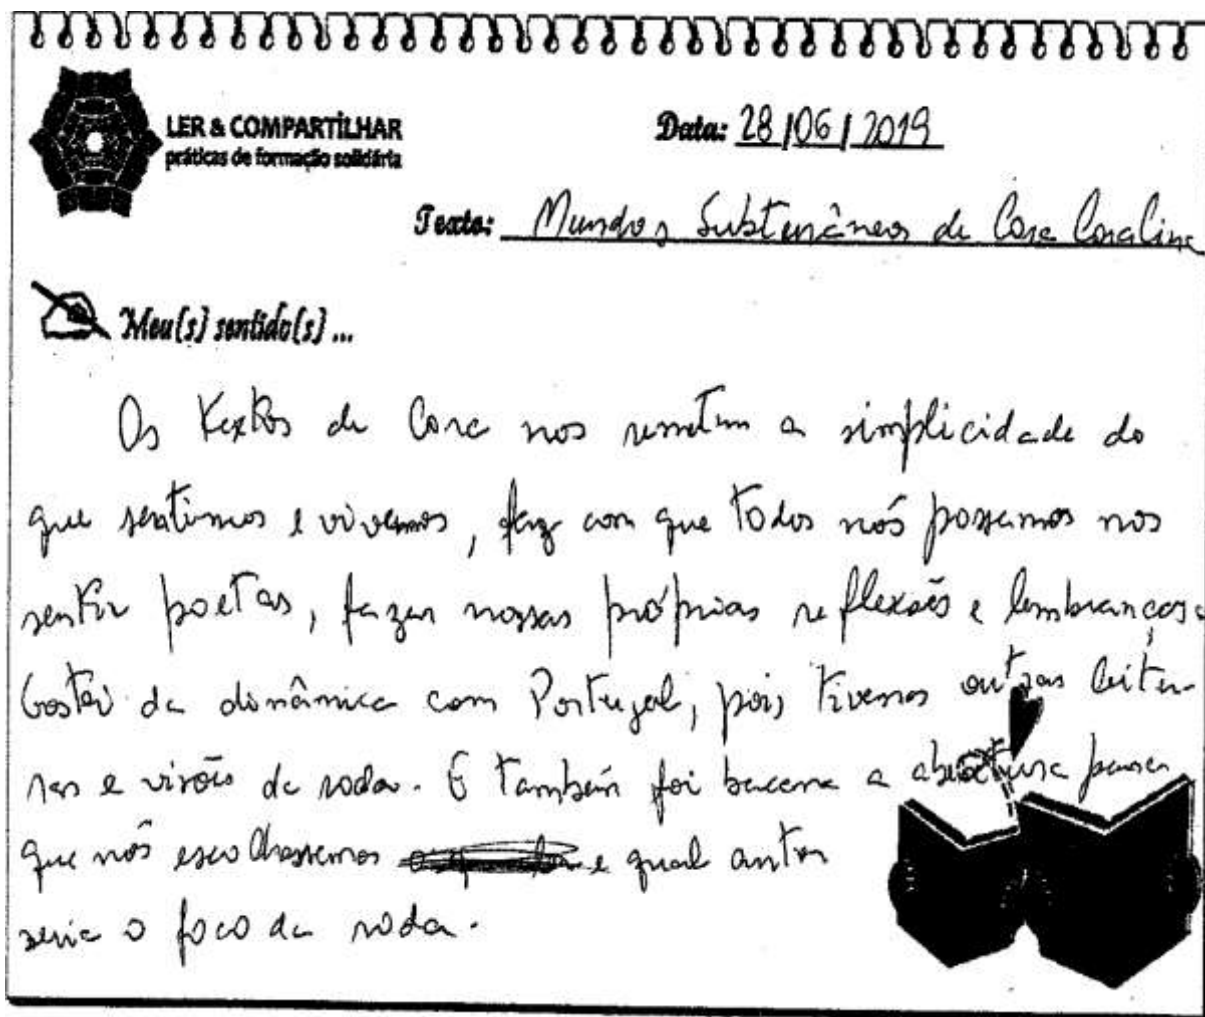 LER & COMPARTİLHAR
práticas de formação solidária
Data: 28/06/2019
Texto: Mundos Subterrâneos de Cora Coralina
Meu(s) sentido(s)...
Os textos de Cora nos remetem a simplicidade do
que sentimos e vivemos, faz com que todos nós possamos nos
sentir poetas, fazer nossas próprias reflexões e lembranças.
Gostei da dinâmica com Portugal, pois tivemos outras leitu-
ras e visões da roda. E também foi bacana a abertura para
que nós escolhessemos e qual autor
seria o foco da roda.